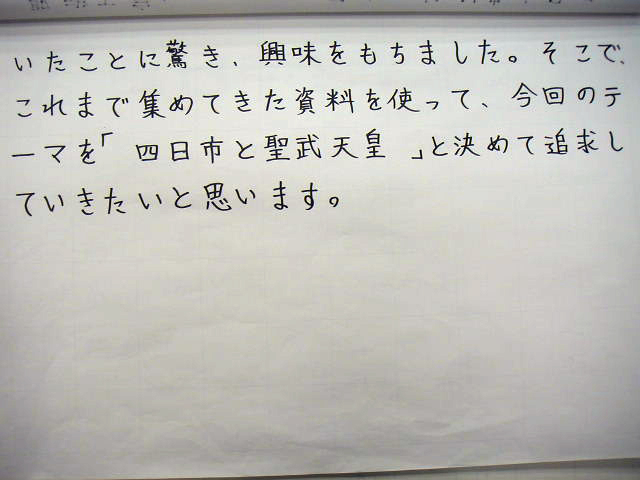 いたことに驚き、興味をもちました。そこで、
これまで集めてきた資料を使って、今回のテ
ーマを「四日市と聖武天皇」と決めて追求し
ていきたいと思います。